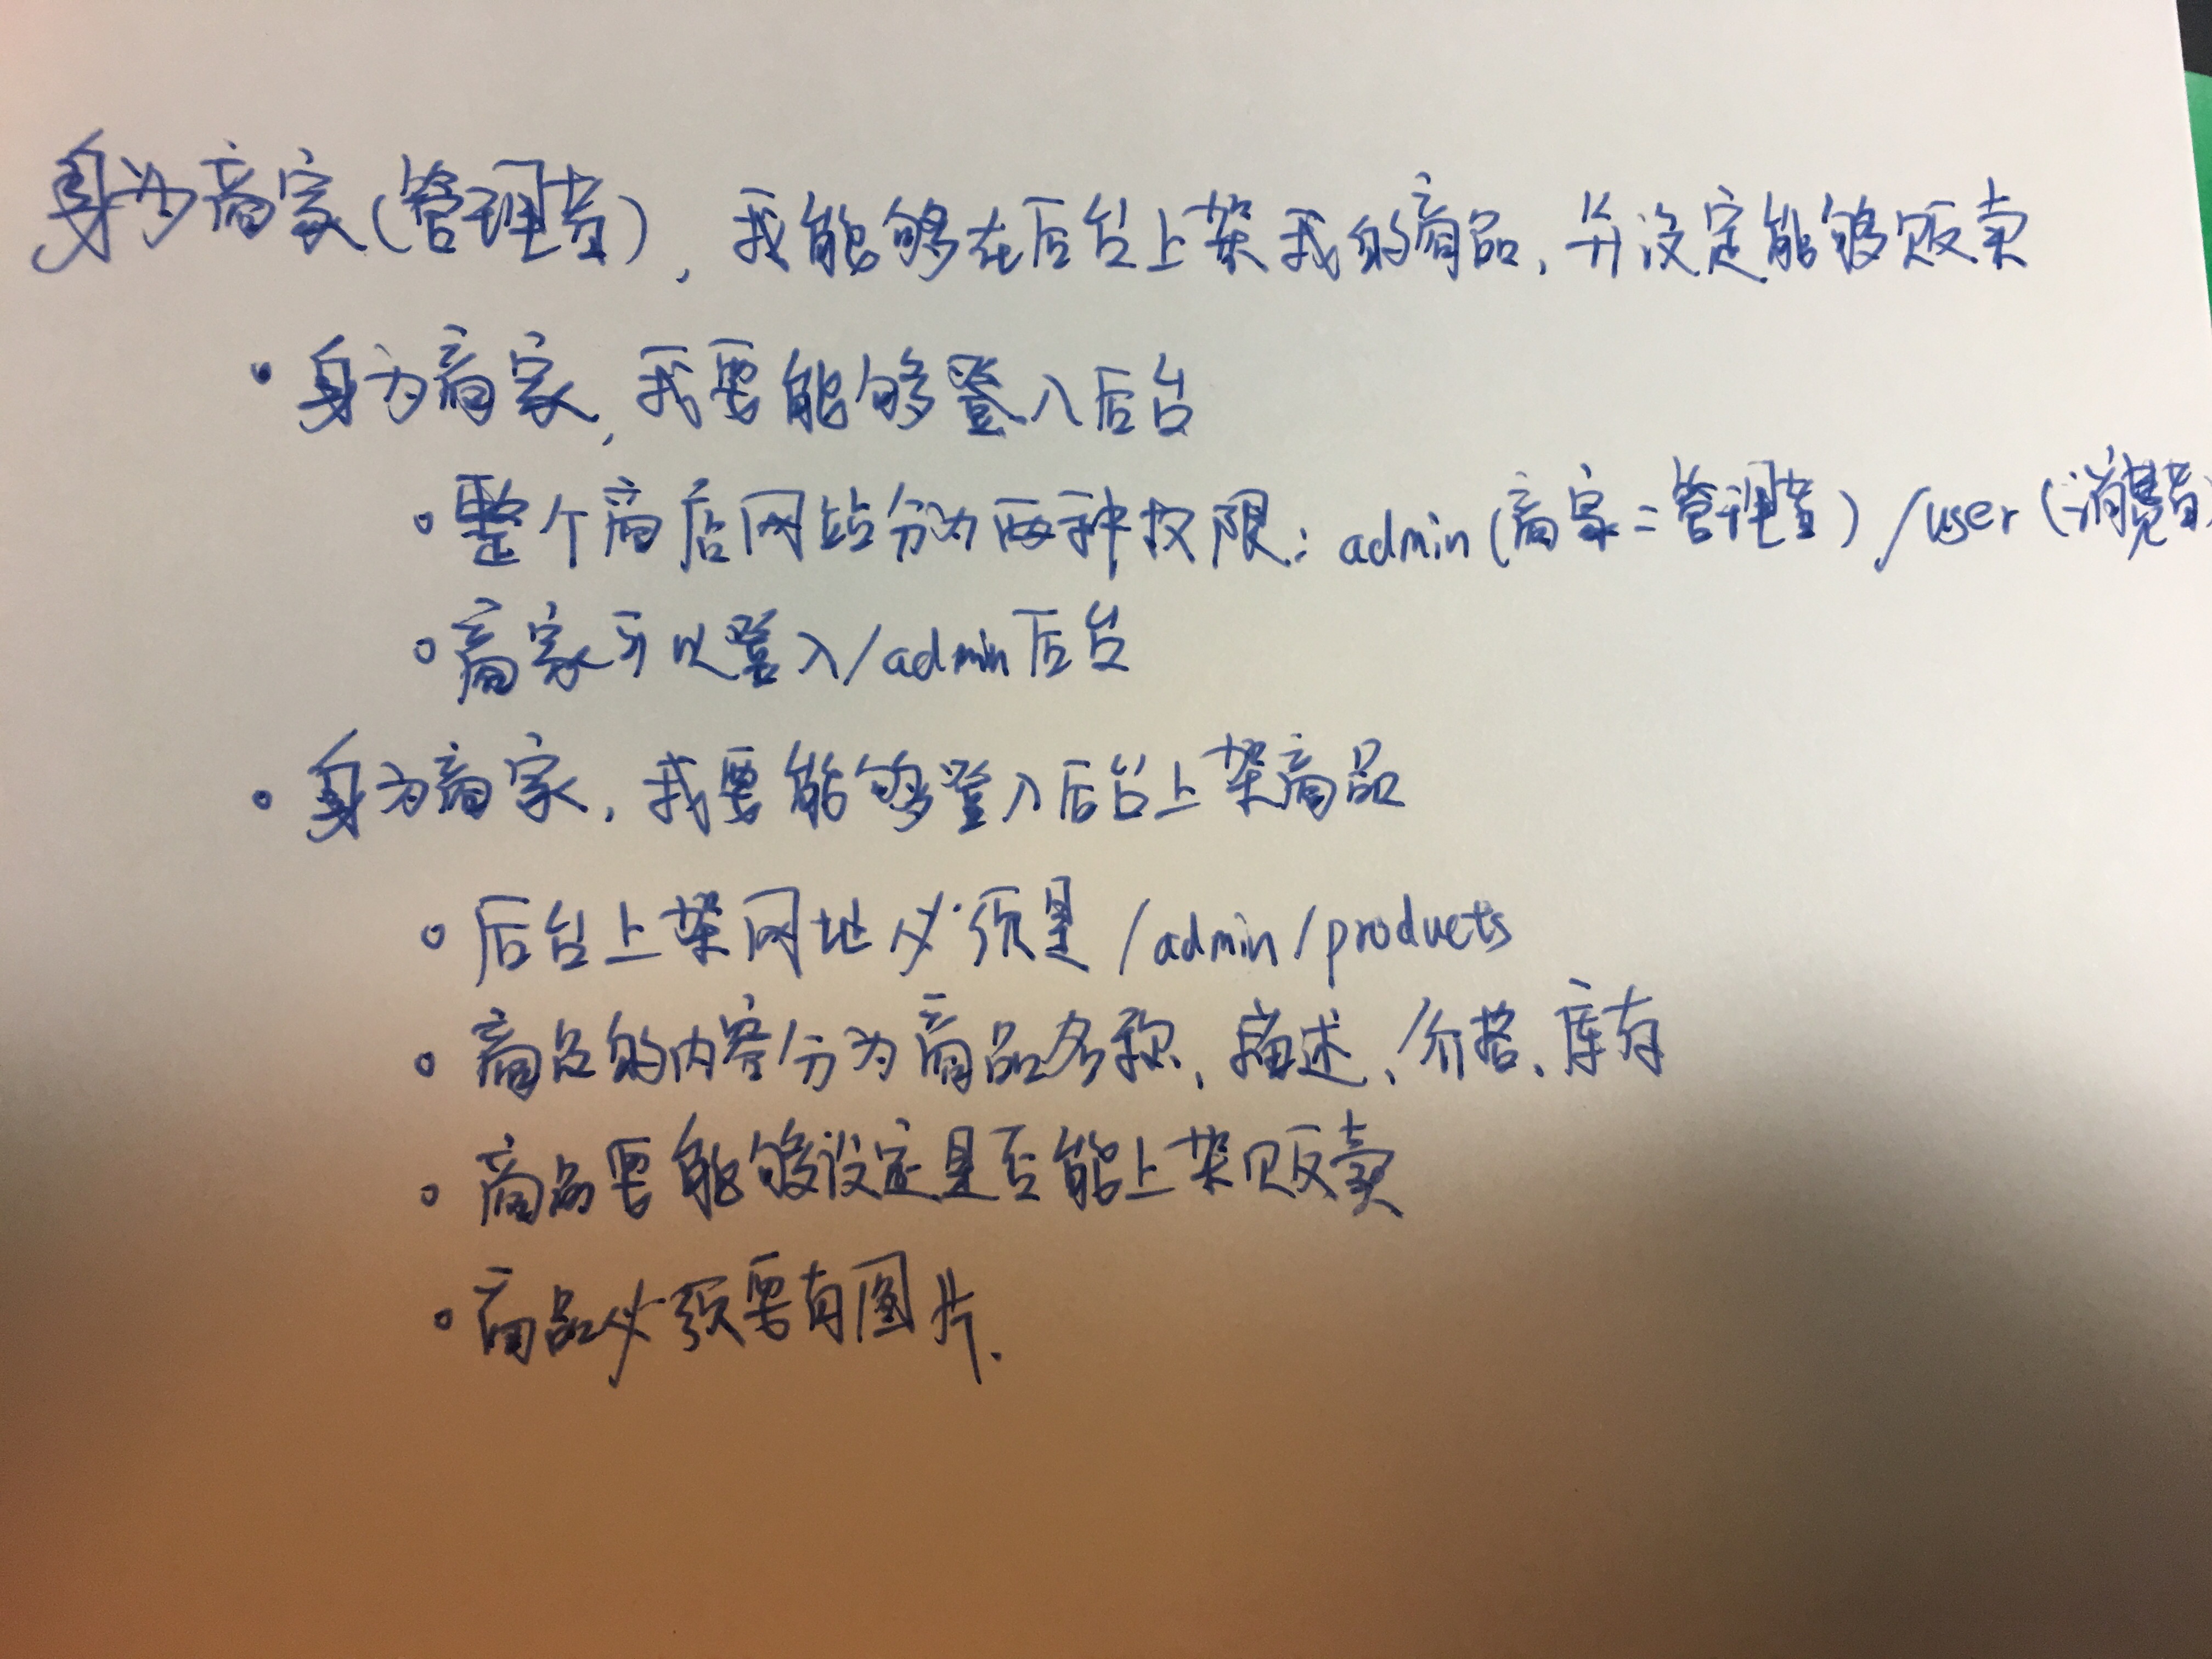 身为商家(管理者), 我能够在后台上架我的商品, 并设定能够贩卖
· 身为商家, 我要能够登入后台
。整个商店网站分为两种权限: admin(商家=管理者) /user(消费者
。商家可以登入/admin后台
。身为商家, 我要能够登入后台上架商品
。后台上架网址必须是 /admin/products
。商品的内容分为商品名称, 描述, 价格, 库存
。商品要能够设定是否能上架贩卖
。商品必须要有图片.